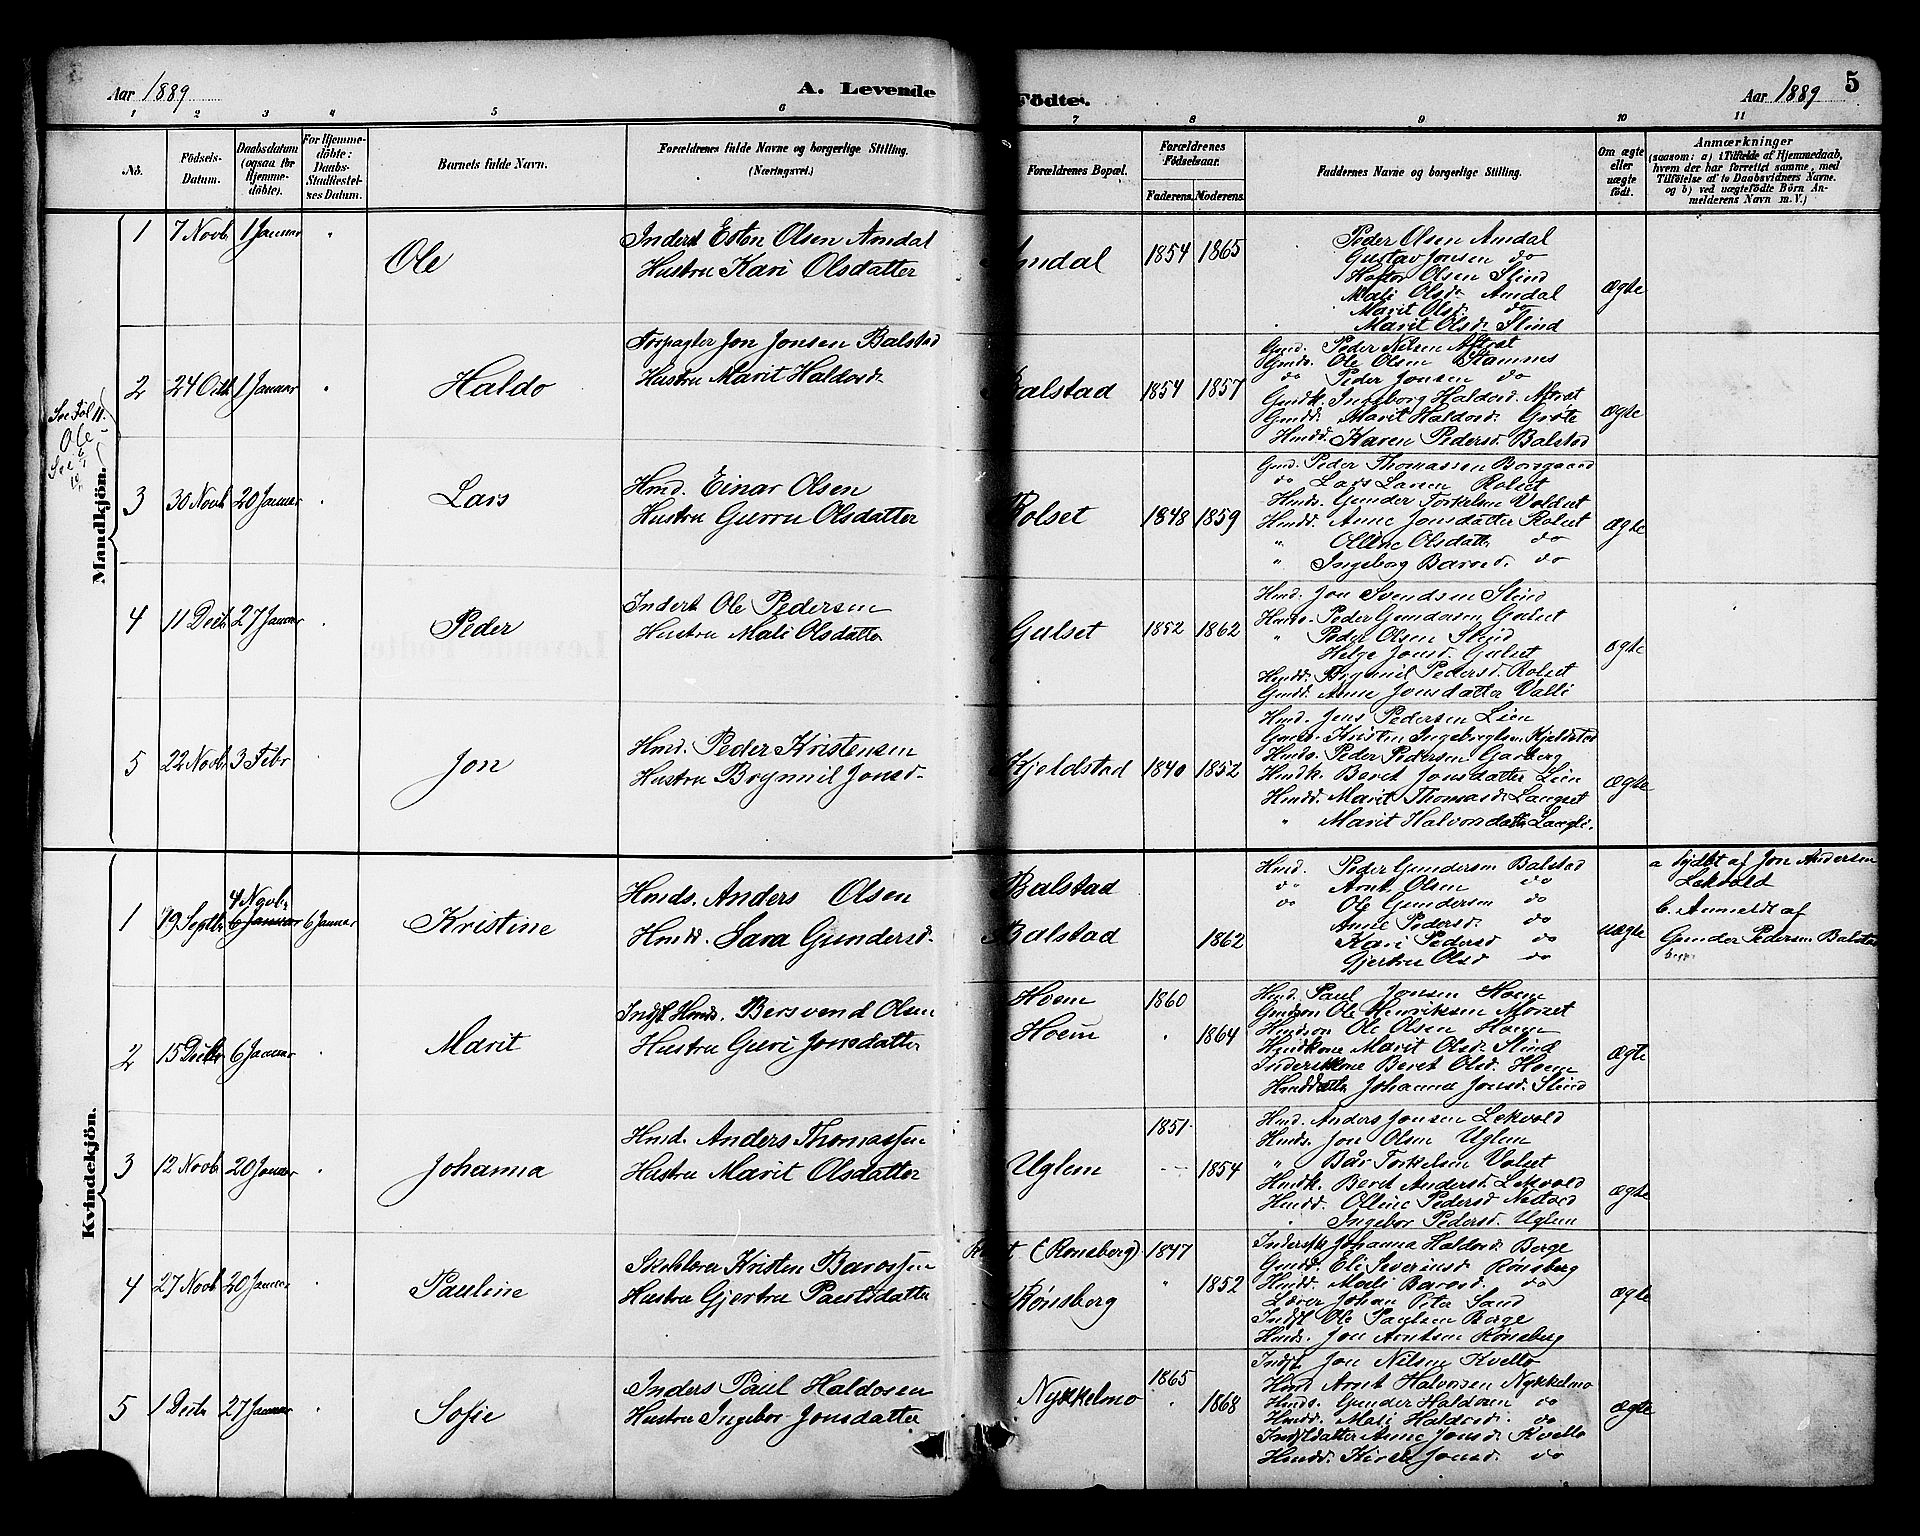 Aar 1889
A. Levende
Fødte.
Aar 1889
5
1 2 3 4 5 6 7 8 9 10 11
No.
Fødsels-Datum.
Daabsdatum (ogsaa for Hjemmedøbte).
For Hjemmedøbte: Daabs-Stadfæstelses Datum.
Barnets fulde Navn.
Forældrenes fulde Navne og borgerlige Stilling. (Næringsvei.)
Forældrenes Bopæl.
Forældrenes Fødselsaar.
Faderens. Moderens.
Faddernes Navne og borgerlige Stilling.
Om ægte eller uægte født.
Anmærkninger
(saasom: a) i Tilfælde af Hjemmedaab, hvem der har forrettet samme, med Tilføielse af to Daabsvidners Navne, og b) ved uægtefødte Børn Anmelderens Navn m. V.)
Mandkjön.
See Föl 11.
Ole
1 7 Novb. 1 Januar " Ole
Inderst Esten Olsen Amdal
Hustru Kari Olsdatter
Amdal 1854 1865
Peder Olsen Amdal
Gustav Jonsen do
Olsen Slind
Mali Olsd. Amdal
Marit Olsd. do
Marit Olsd. Slind
ægte
2 24 Octb 1 Januar " Haldo
Forpagter Jon Jonsen Balstad
Hustru Marit Haldosd.
Balstad 1854 1857
Gmd. Peder Nilsen Aftret
Gmds. Ole Olsen Stamnes
do Peder Jonsen do
Gmdk. Ingeborg Haldosd. Aftret
Gmdd. Marit Haldosd. Grøte
Hmdd. Karen Pedersd. Balstad
ægte
3 30 Novb 20 Januar " Lars
Hmd. Einar Olsen
Hustru Gurru Olsdatter
Rolset 1848 1859
Gmd. Peder Thomassen Borsgaard
do Lars Larsen Rolset
Hmds. Gunder Torkelsen Voldset
Hmdd. Anne Jonsdatter Rolset
" Olline Olsdatter do
" Ingeborg Barosd. do
ægte
4 11 Decb. 27 Januar " Peder
Inderst Ole Pedersen
Hustru Mali Olsdatter
Gulset 1852 1862
Hmd. Jon Svendsen Slind
Hmds. Peder Gundersen Gulset
" Peder Olsen
Helge Jonsd. Gulset
Hmdd. Brynnil Pedersd. Rolset
Gmdd. Anne Jonsdatter Valli
ægte
5 22 Novb. 3 Febr Jon
Hmd. Peder Kristensen
Hustru Brynnil Jonsd.
Kjeldstad 1840 1852
Hmd. Jens Pedersen Lien
Kjeldstad
Hmds. Peder Pedersen Garberg
Hmdk. Beret Jonsdatter Lien
Hmdd. Marit Thomasd. Langset
" Marit Halvorsdatter Langli.
ægte
Kvindekjön.
1 19 Septbr 4 Novb. 6 Januar 6 Januar Kristine
Hmds. Anders Olsen
Hmdd. Sara Gundersd.
Balstad
Balstad 1862
Hmd. Peder Gundersen Balstad
do Arnt Olsen do
do Ole Gundersen do
Anne Pedersd. do
Kari Pedersd do
Gjertru Olsd do
uægte
a døbt af Jon Andersen
Lekvold
b. Anmeldt af
Gunder Pedersen Balstad
2 15 Decbr 6 Januar " Marit
Indst. Hmds. Bersvend Olsen
Hustru Guri Jonsdatter
Hoem 1860
Hoem " 1864
Hmd. Paul Jonsen Hoem
Gmdsøn Ole Henriksen Morset
Hmdsøn Ole Olsen Hoem
Hmdkone Marit Olsd. Slind
Inderstkone Beret Olsd. Hoem
Hmddatter Johanna Jonsd. Slind
ægte
3 12 Novb. 20 Januar " Johanna
Hmd. Anders Thomassen
Hustru Marit Olsdatter
Uglem 1851 1854
Hmd. Anders Jonsen Lekvold
Hmds. Jon Olsen Uglem
" Bår Torkelsen Volset
Hmdk. Beret Andersd. Lekvold
Hmdd. Olline Pedersd
" Ingebor Pedersd. Uglem
ægte
4 27 Novb. 20 Januar " Pauline
Skolelærer Kristen Barossen
Hustru Gjertru Paulsdatter
(Rønsberg) 1847
Rønsberg " 1852
Johanna Haldosd. Berge
Gmdd. Eli Severinsd Rønsberg
Hmdd. Mali Barosd. do
Lærer Johan Sand
Indst. Ole Paulsen Berge
Hmds. Jon Arntsen Rønsberg
ægte
5 1 Decbr 27 Januar " Sofie
Inders Paul Haldosen
Hustru Ingebor Jonsdatter
Nykkelmo 1865 " 1868
Indst Jon Nilsen Kvello
Hmd Arnt Halvorsen Nykkelmo
Hmds. Gunder Haldosen do
Hmdd. Mali Haldosd. do
Indstdatter Anne Jonsd Kvello
Hmdd. Jonsd. do
ægte